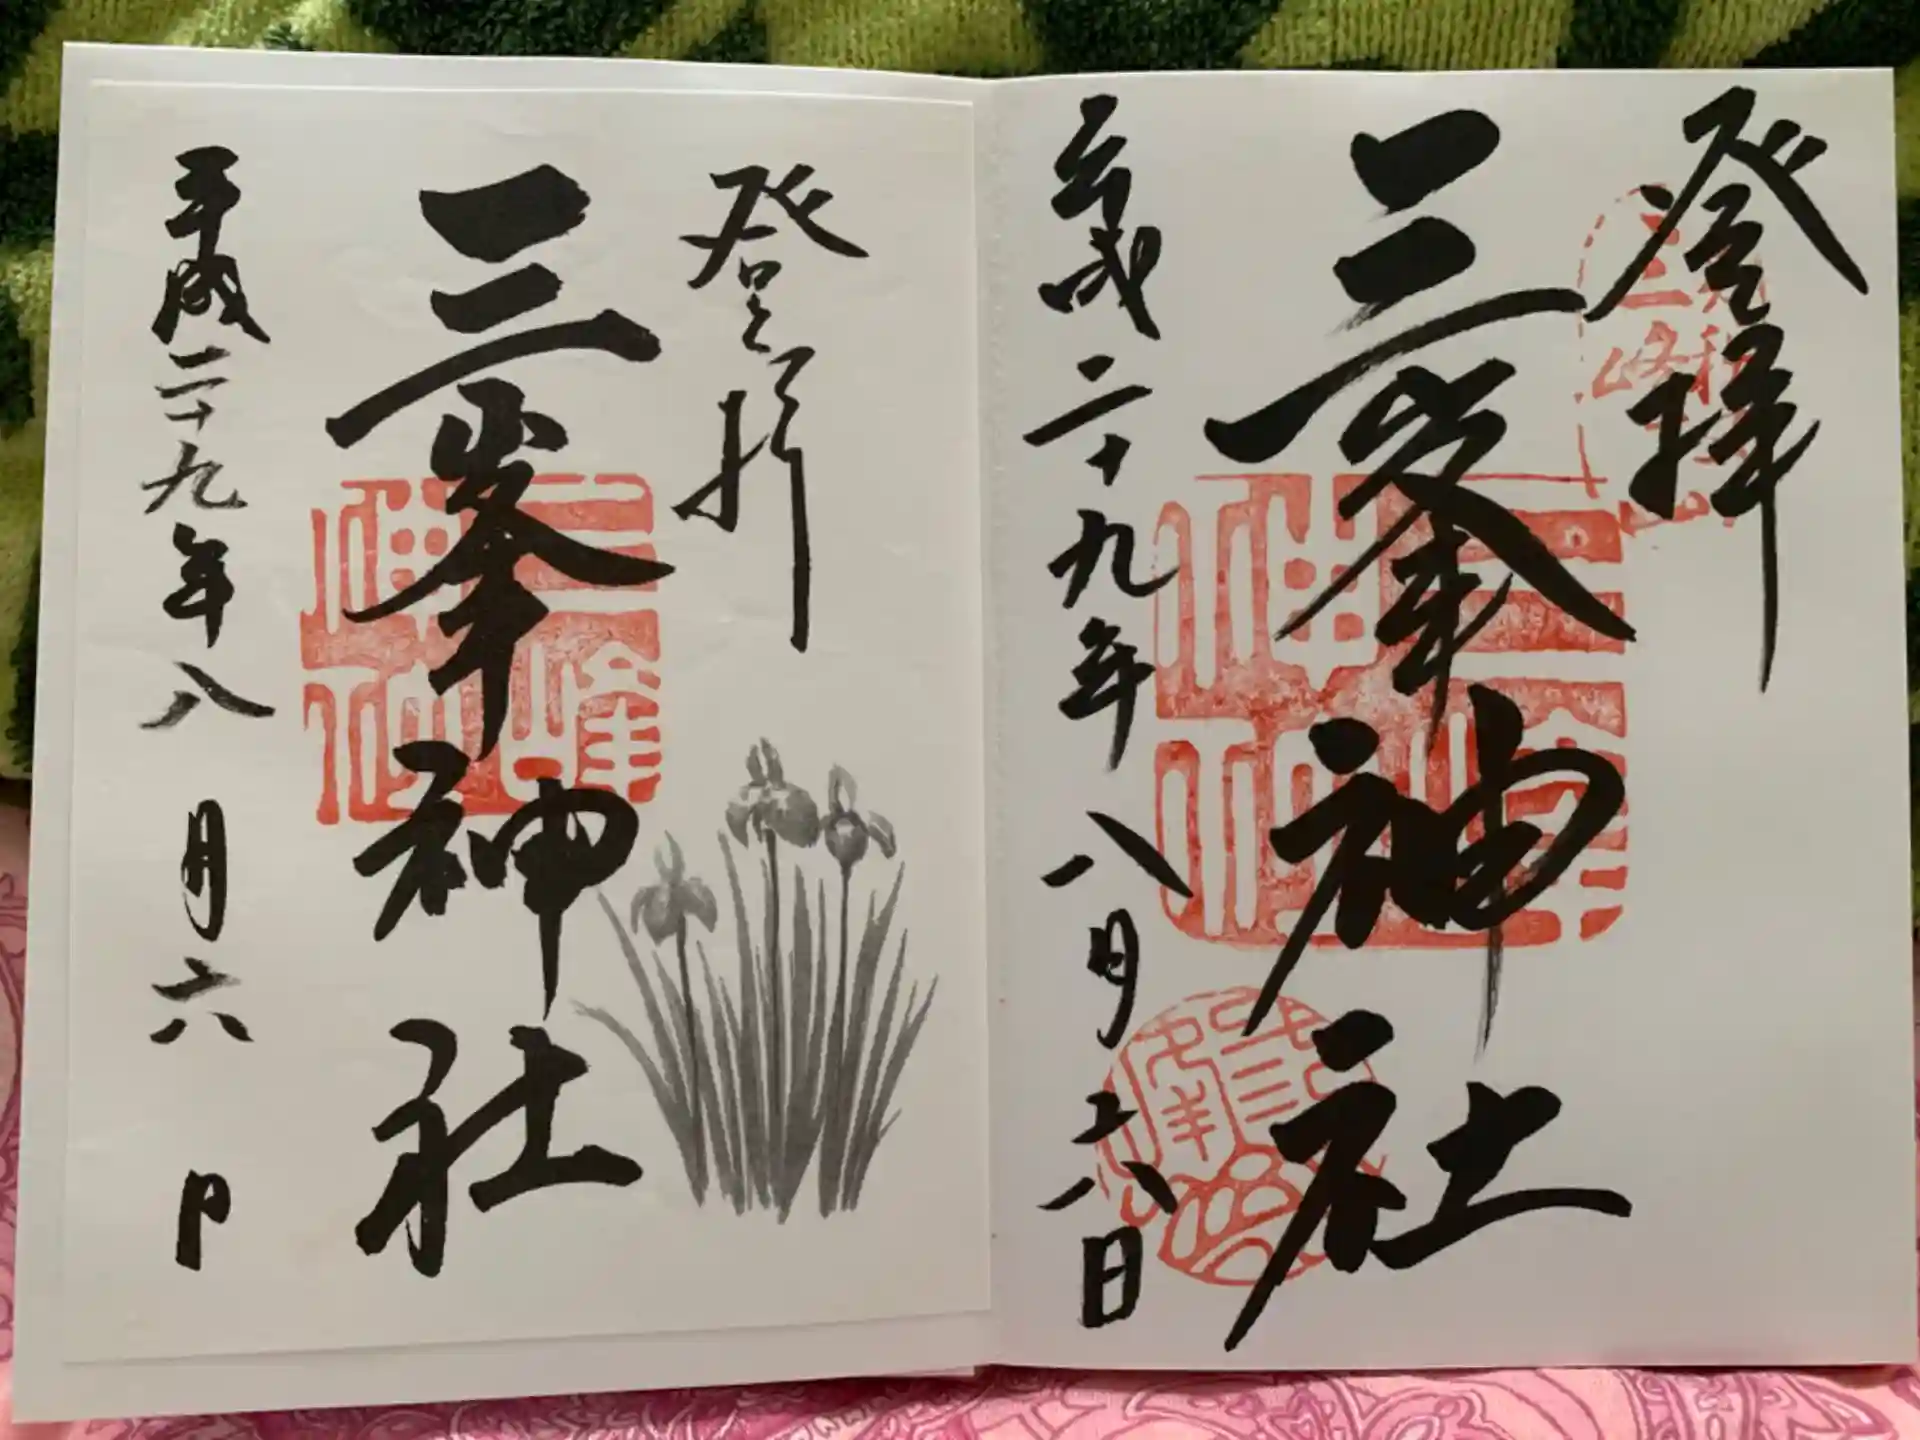 登拝
三峯神社
三峰
神社
平成二十九年八月六日
登拝
三峯神社
三峰
神社
平成二十九年八月六日